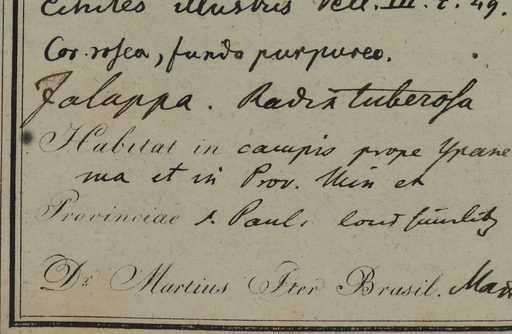 Echites illustris Vell. III. t. 49.
Cor. rosea, fundo purpureo.
Jalappa. Radix tuberosa
Habitat in campis prope Ypane
ma et in Prov. Min et
Provinciae S. Pauli locis
Dr. Martius Iter Brasil.